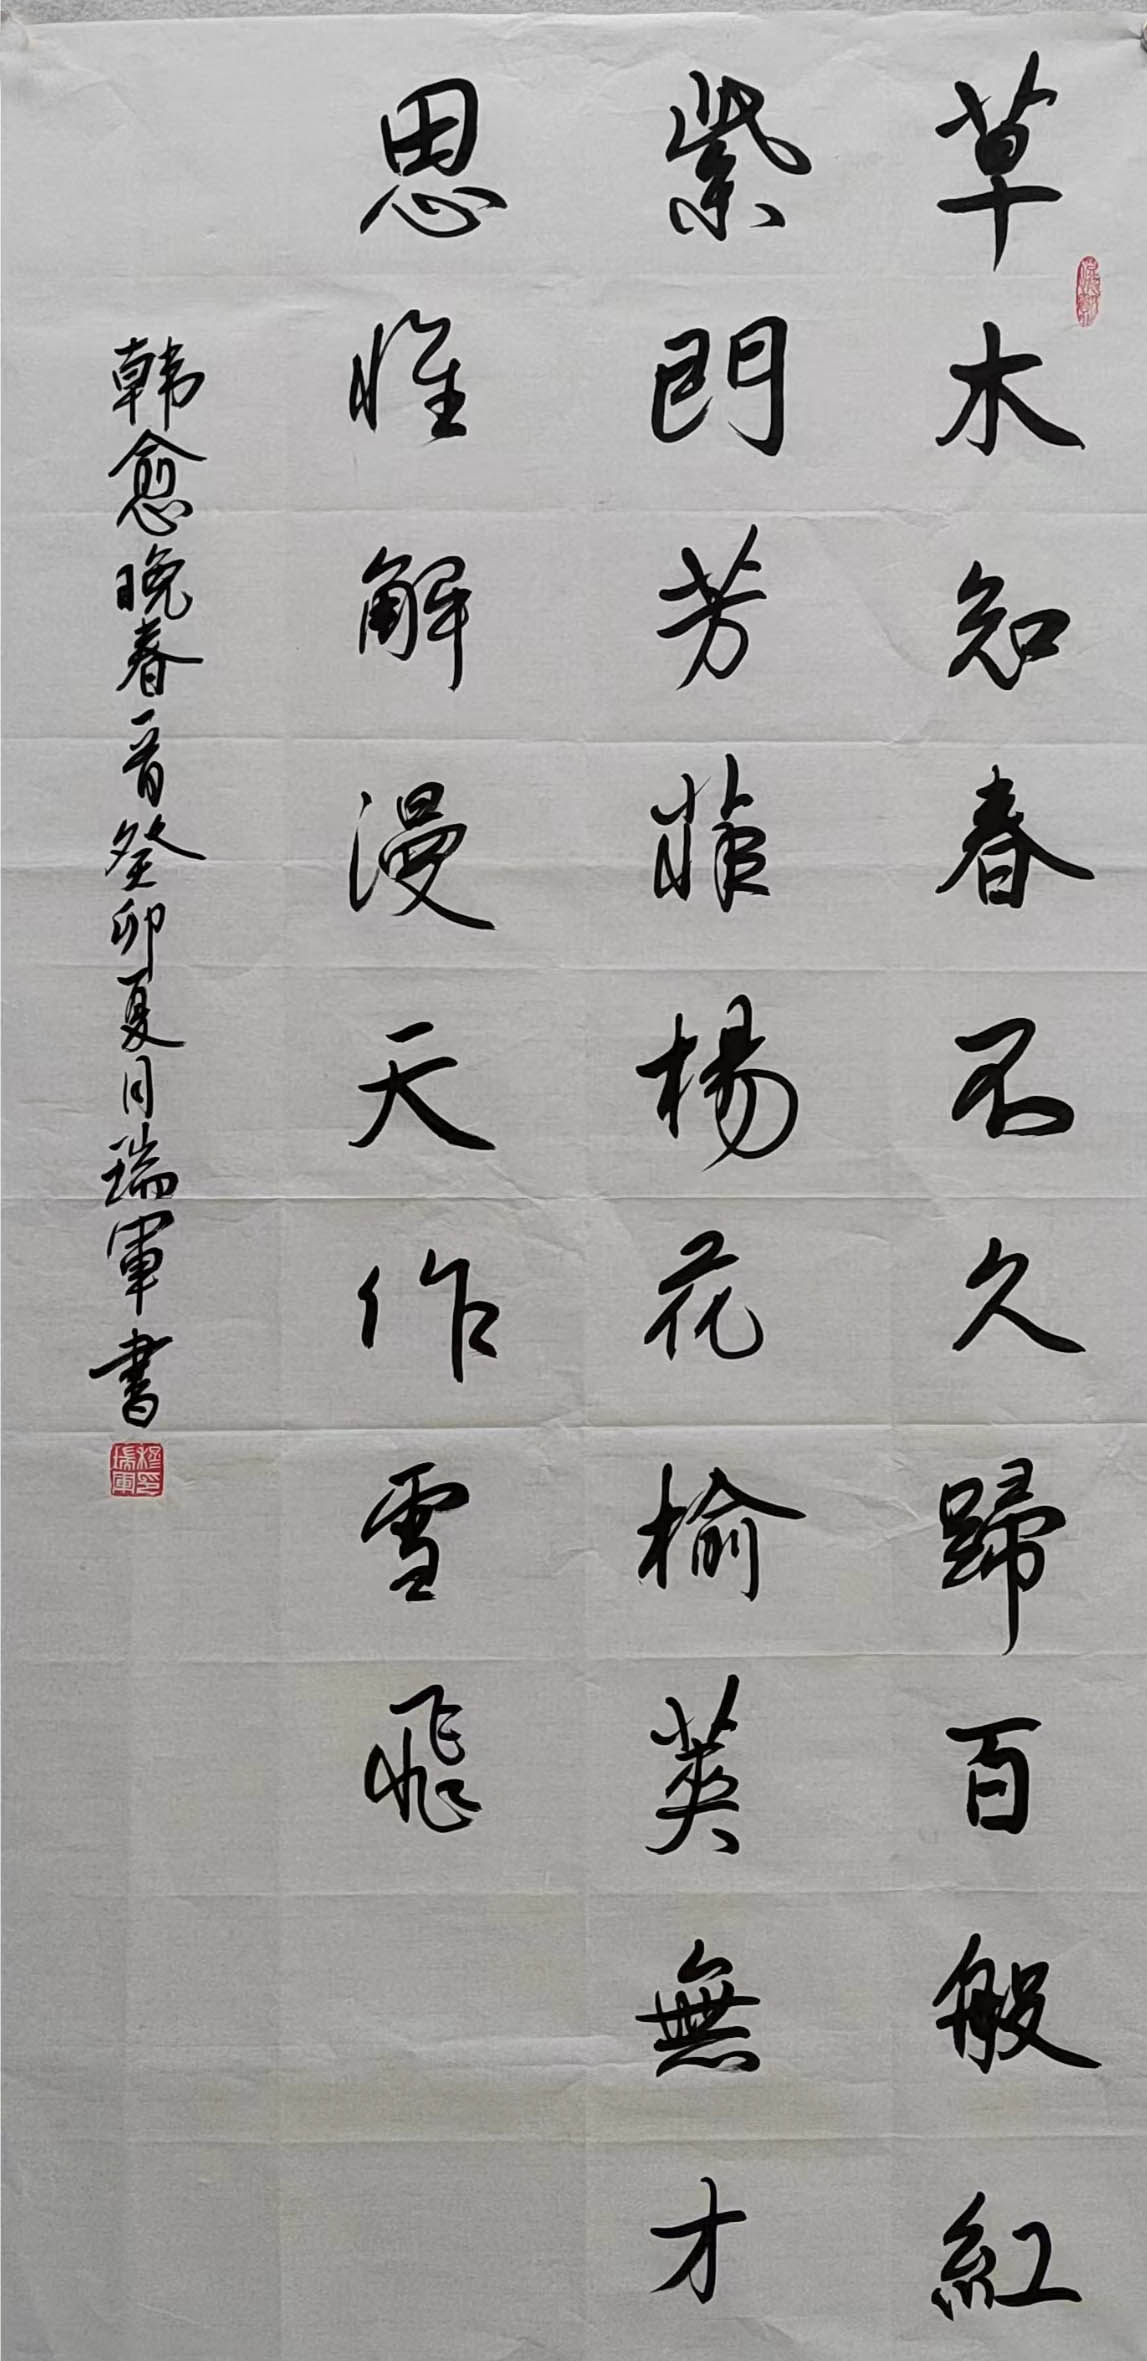 草木知春不久歸百般紅
紫鬥芳菲楊花榆莢無才
思惟解漫天作雪飛
韩愈晚春一首癸卯夏月瑞軍書